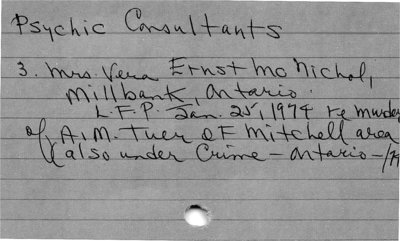 Psychic Consultants
3. Mrs. Vera Ernst Mc Nichol,
Millbank, Ontario.
L.F.P. Jan. 25, 1974 re murder
of A.M. Tuer of Mitchell area
(also under Crime - Ontario -